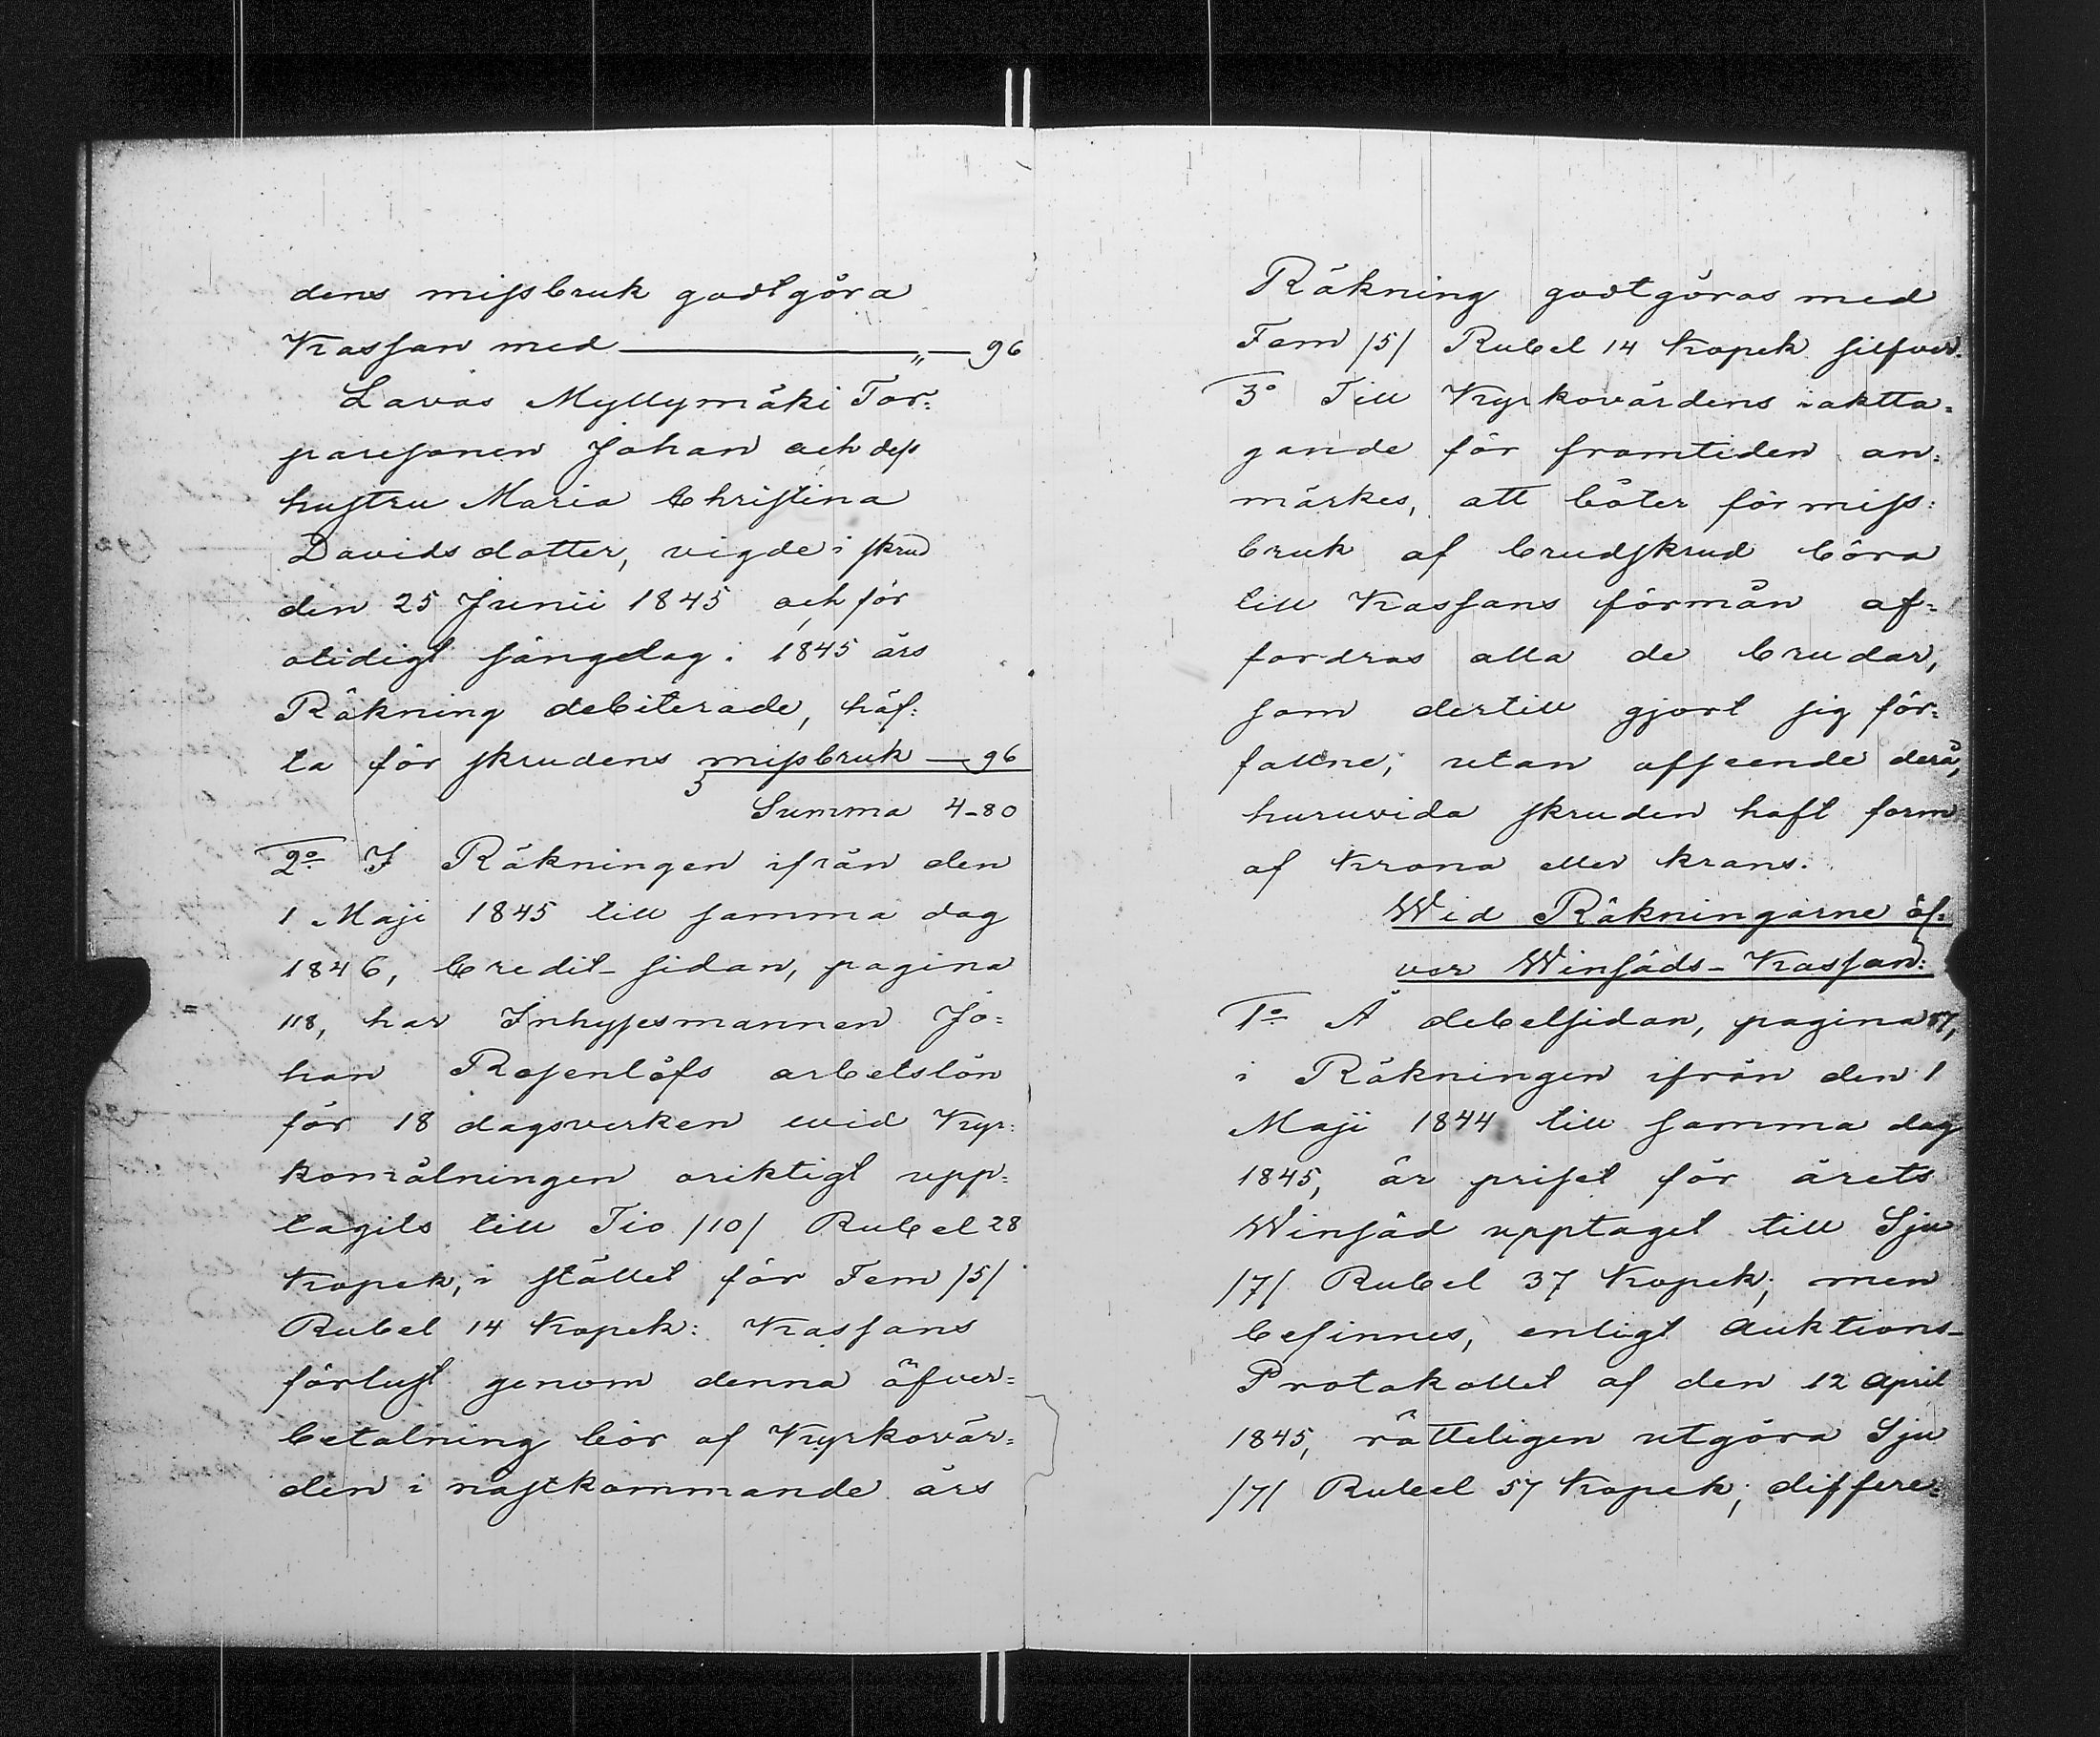 dens missbruk godtgöra
Kassan med ——— „ — 96
Lavas Myllymäki Tor=
paresonen Johan och dess
hustru Maria Christina
Davidsdotter, vigde i skrud
den 25 Junii 1845 och för
otidigt sängelag i 1845 års
Räkning debiterade, häf=
ta för skrudens missbruk — 96
Summa 4-80
2º I Räkningen ifrån den
1 Maji 1845 till samma dag
1846, Credit-sidan, pagina
118, har Inhysesmannen Jo=
han Rosenlöfs arbetslön
för 18 dagsverken wid Kyr=
komålningen oriktigt upp=
tagits till Tio /10/ Rubel 28
Kopek, i stället för Fem /5/
Rubel 14 Kopek: Kassans
förlust genom denna öfver=
betalning bör af Kyrkovär=
den i nästkommande års
Räkning godtgöras med
Fem /5/ Rubel 14 Kopek silfver.
3º Till Kyrkovärdens iaktta=
gande för framtiden an=
märkes, att böter för miss=
bruk af brudskrud böra
till Kassans förmån af=
fordras alla de brudar,
som dertill gjort sig för=
fallne, utan afseende derå,
huruvida skruden haft form
af Krona eller krans.
Wid Räkningarne öf=
ver Winsäds-Kassan:
1º Å debetsidan, pagina 57,
i Räkningen ifrån den 1
Maji 1844 till samma dag
1845, är priset för årets
Winsäd upptaget till Sju
/7/ Rubel 37 Kopek; men
befinnes, enligt Auktions-
Protokollet af den 12 April
1845, rätteligen utgöra Sju
/7/ Rubel 57 Kopek; differe=